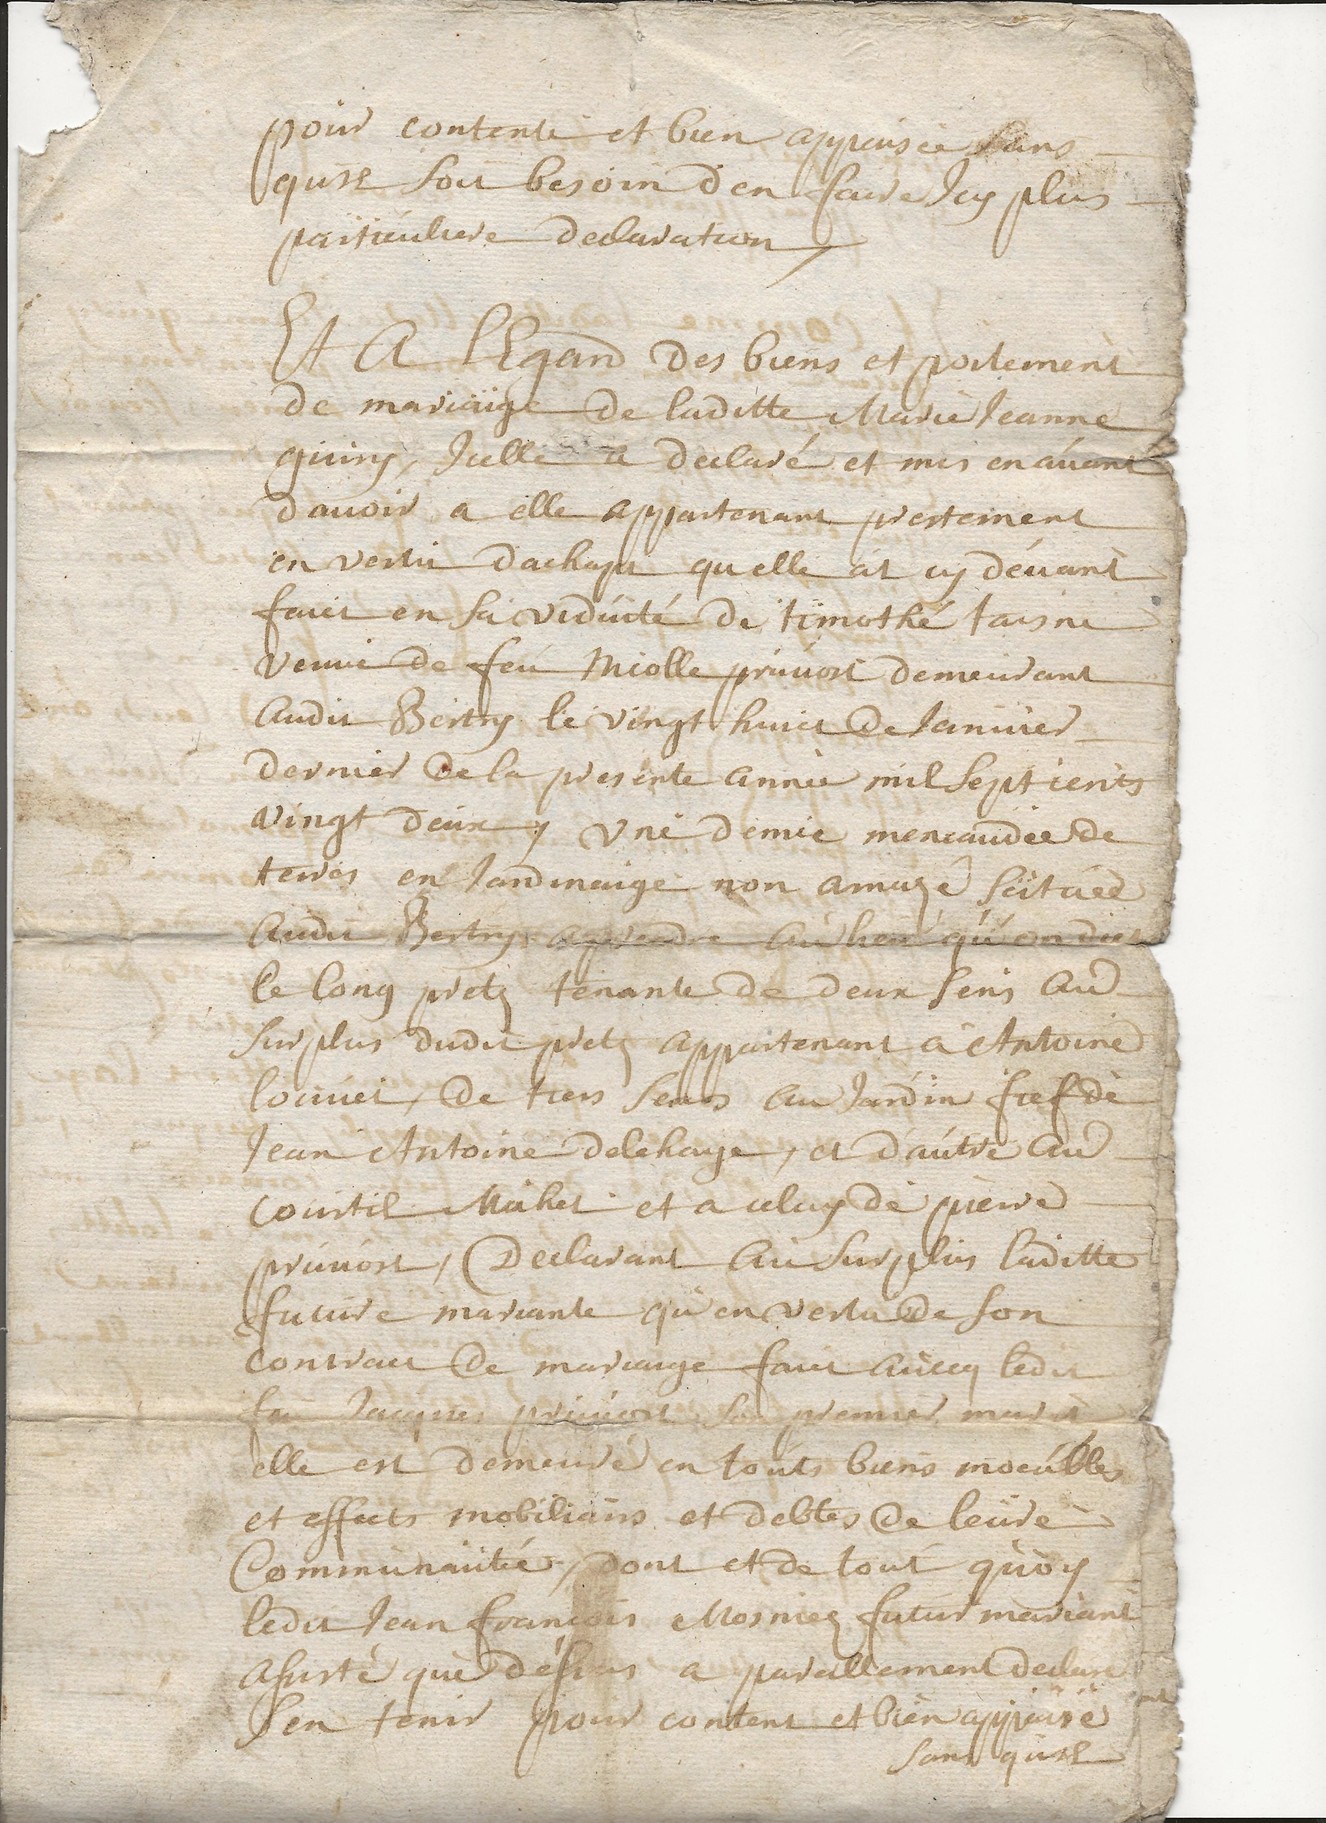 pour contente et bien appaisée sans
qu'il soit besoin d'en faire Icy plus
particuliere declaration
Et A l'Egard des biens et portement
de mariaige de laditte Marie Jeanne
guiry, Icelle a declaré et mis en avant
d'avoir a elle appartenant prestement
en vertu d'achapt qu'elle at cy dévant
faict en sa viduité de timothé taisne
veuve de feu Niolle pruvost demeurant
Audit Bertry le vingt huict de Janvier
dernier de la presente année mil sept cents
vingt deux, une demie mencaudée de
terres en Jardinaige non amazé scituée
Audit Bertry aprendre au lieu qu'on dict
le long pretz tenante de deux sens au
surplus dudit pretz appartenant à Antoine
louvet, de tiers sens au Jardin fief de
Jean Antoine delehaye, et d'autre au
courtil Mahet et a celuy de pierre
pruvost, Declarant au surplus laditte
future mariante qu'en vertu de son
contract de mariaige faict avecq ledit
feu Jacques pruvost son premier marit
elle est demeuré en touts biens moeúbles
et effects mobiliairs et debtes de leure
Communauté, dont et de tout quoy
ledit Jean françois Mosniez futur mariant
assisté que déssus a pareillement declaré
s'en tenir pour content et bien appaisé
sans qu'il